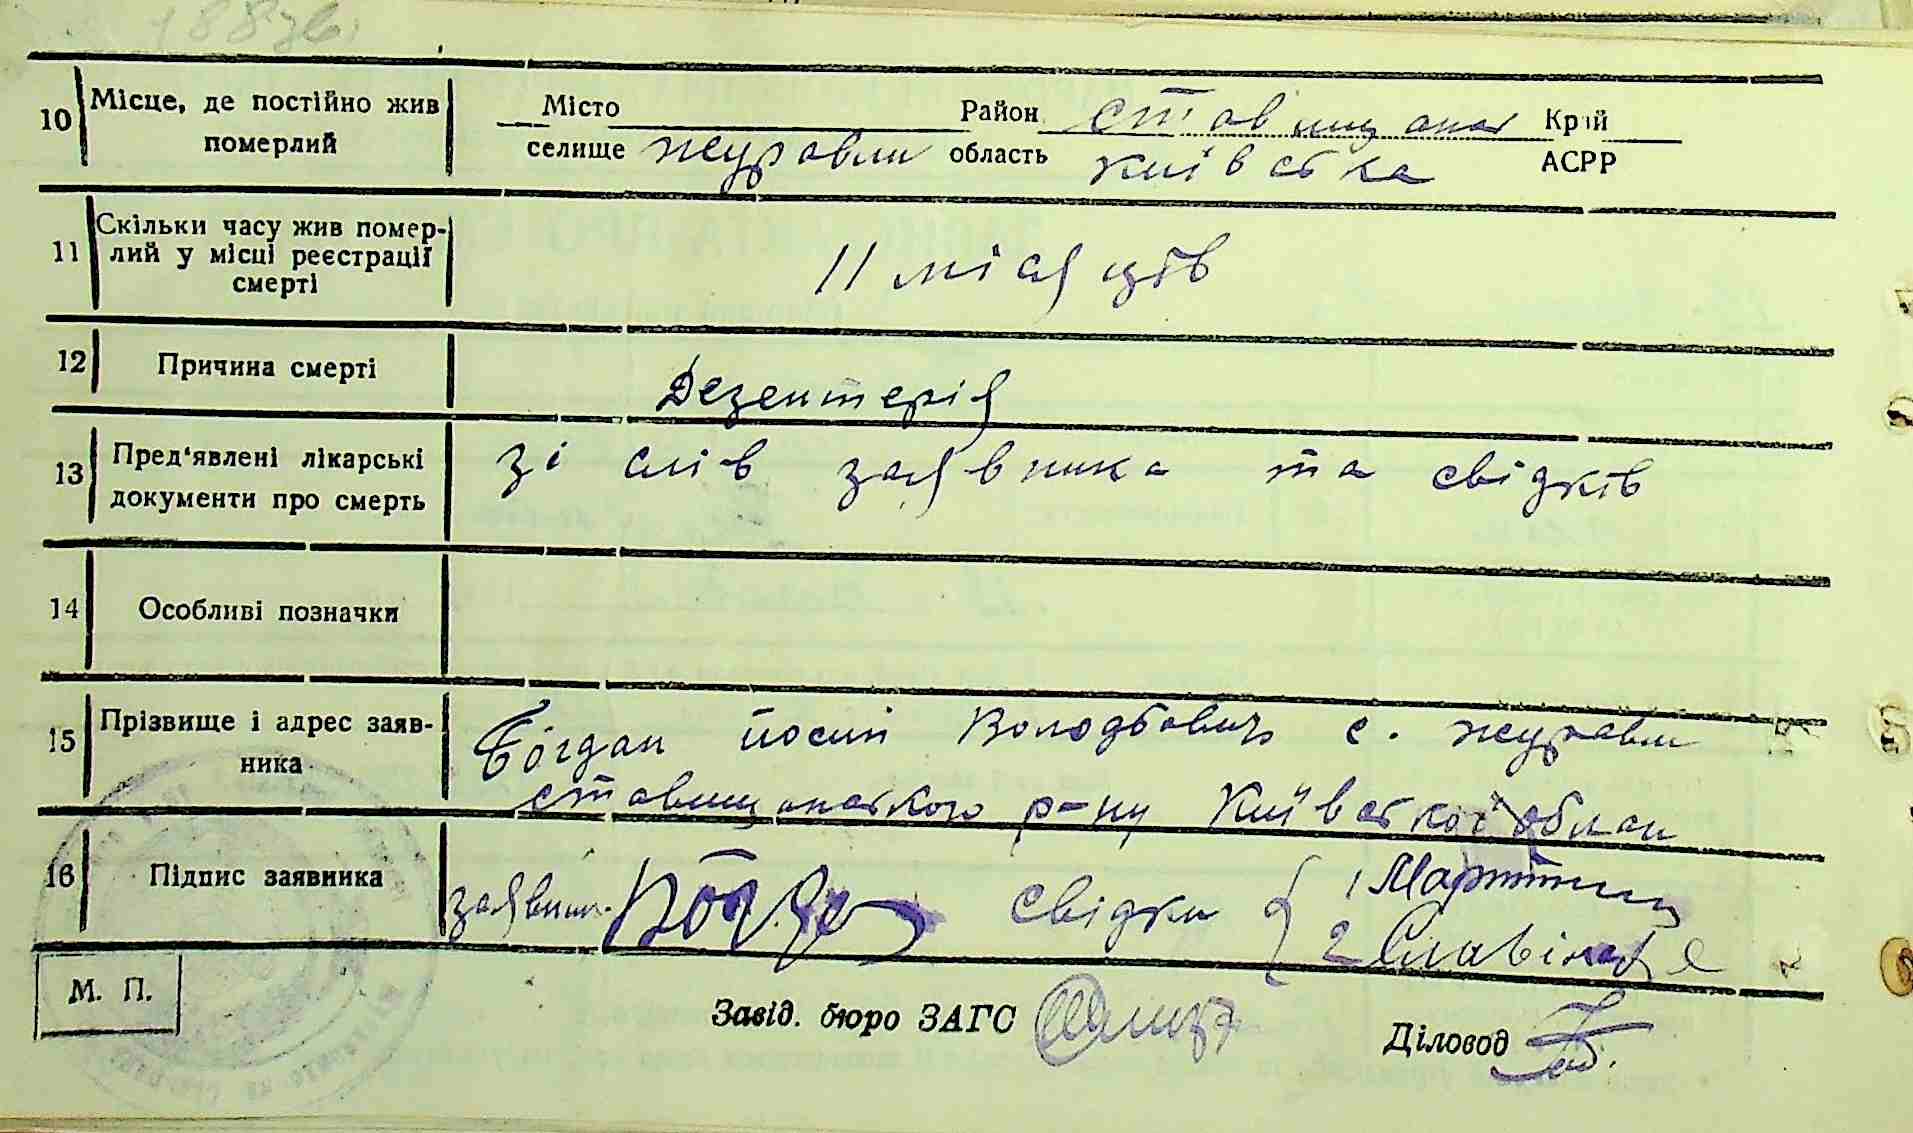 10 Місце, де постійно жив померлий
Місто Район ставищанськ Край
селище журавли область київська АСРР
11 Скільки часу жив помер-
лий у місці реєстрації
смерті
11 місяців
12 Причина смерті
Дезентерія
13 Пред'явлені лікарські
документи про смерть
зі слів заявника та свідків
14 Особливі позначки
15 Прізвище і адрес заяв-
ника
Богдан йосип с. журавли
ставищанського р-ну Київської област
16 Підпис заявника
заявник свідки 1
2
М. П.
Завід. бюро ЗАГС
Діловод